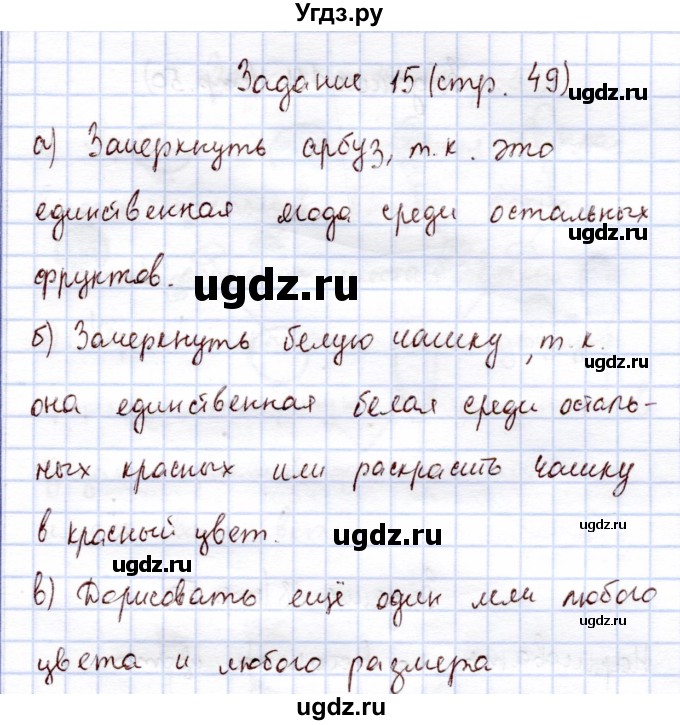 Угдз.ру
Задание 15 (стр. 49)
ugdz.ru
а) Зачеркнуть арбуз, т.к. это
единственная ягода среди остальных
ugdz.ru
фруктов.
ugdz.ru
б) Зачеркнуть белую чашку, т.к.
ugdz.ru
она единственная белая среди осталь-
ных красных или раскрасить чашку
в красный цвет.
ugdz.ru
ugdz.ru
ugdz.ru
в) Дорисовать ещё один или любого
ugdz.ru
цвета и любого размера
ugdz.ru